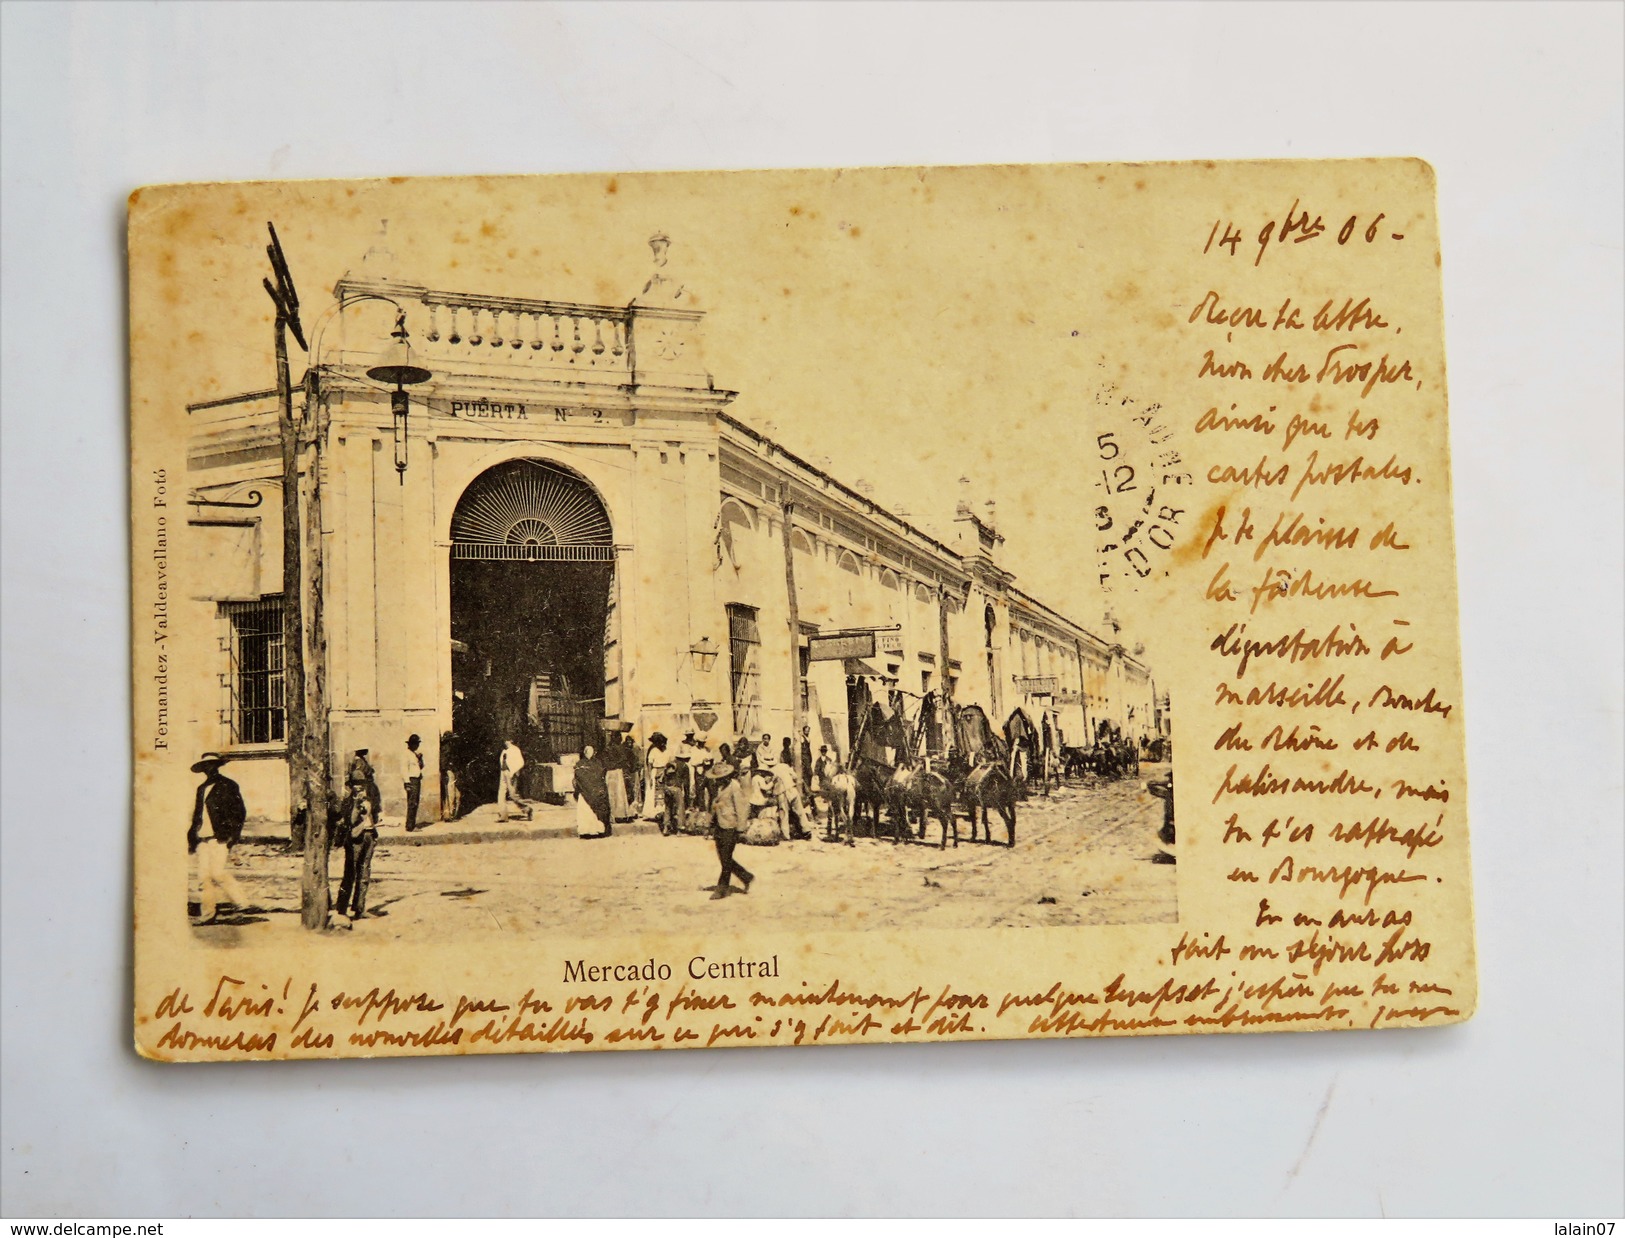 Fernandez-Valdeavellano Fotó
PUERTA Nº 2.
BEAUNE
5
-12
COTE-D'OR
Mercado Central
14 9bre 06 -
Reçu ta lettre,
mon cher Prosper,
ainsi que tes
cartes postales.
Je te plains de
la fâcheuse
dégustation à
Marseille, Bouches
du Rhône et de
palissandre, mais
tu t'es rattrapé
en Bourgogne.
Tu en auras
fait un séjour hors
de Paris! Je suppose que tu vas t'y fixer maintenant pour quelque temps et j'espère que tu me
donneras des nouvelles détaillées sur ce qui s'y fait et dit. Affectueux embrassements,
www.delcampe.net
lalain07